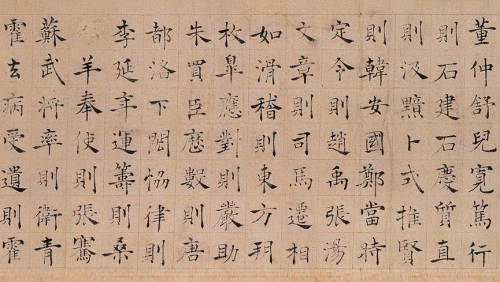 董仲舒兒寬篤行
則石建石慶質直
則汲黯卜式推賢
則韓安國鄭當時
定令則趙禹張湯
文章則司馬遷相
如滑稽則東方朔
枚皋應對則嚴助
朱買臣歷數則唐
都洛下閎協律則
李延年運籌則桑
羊奉使則張騫
蘇武將率則衛青
霍去病受遺則霍